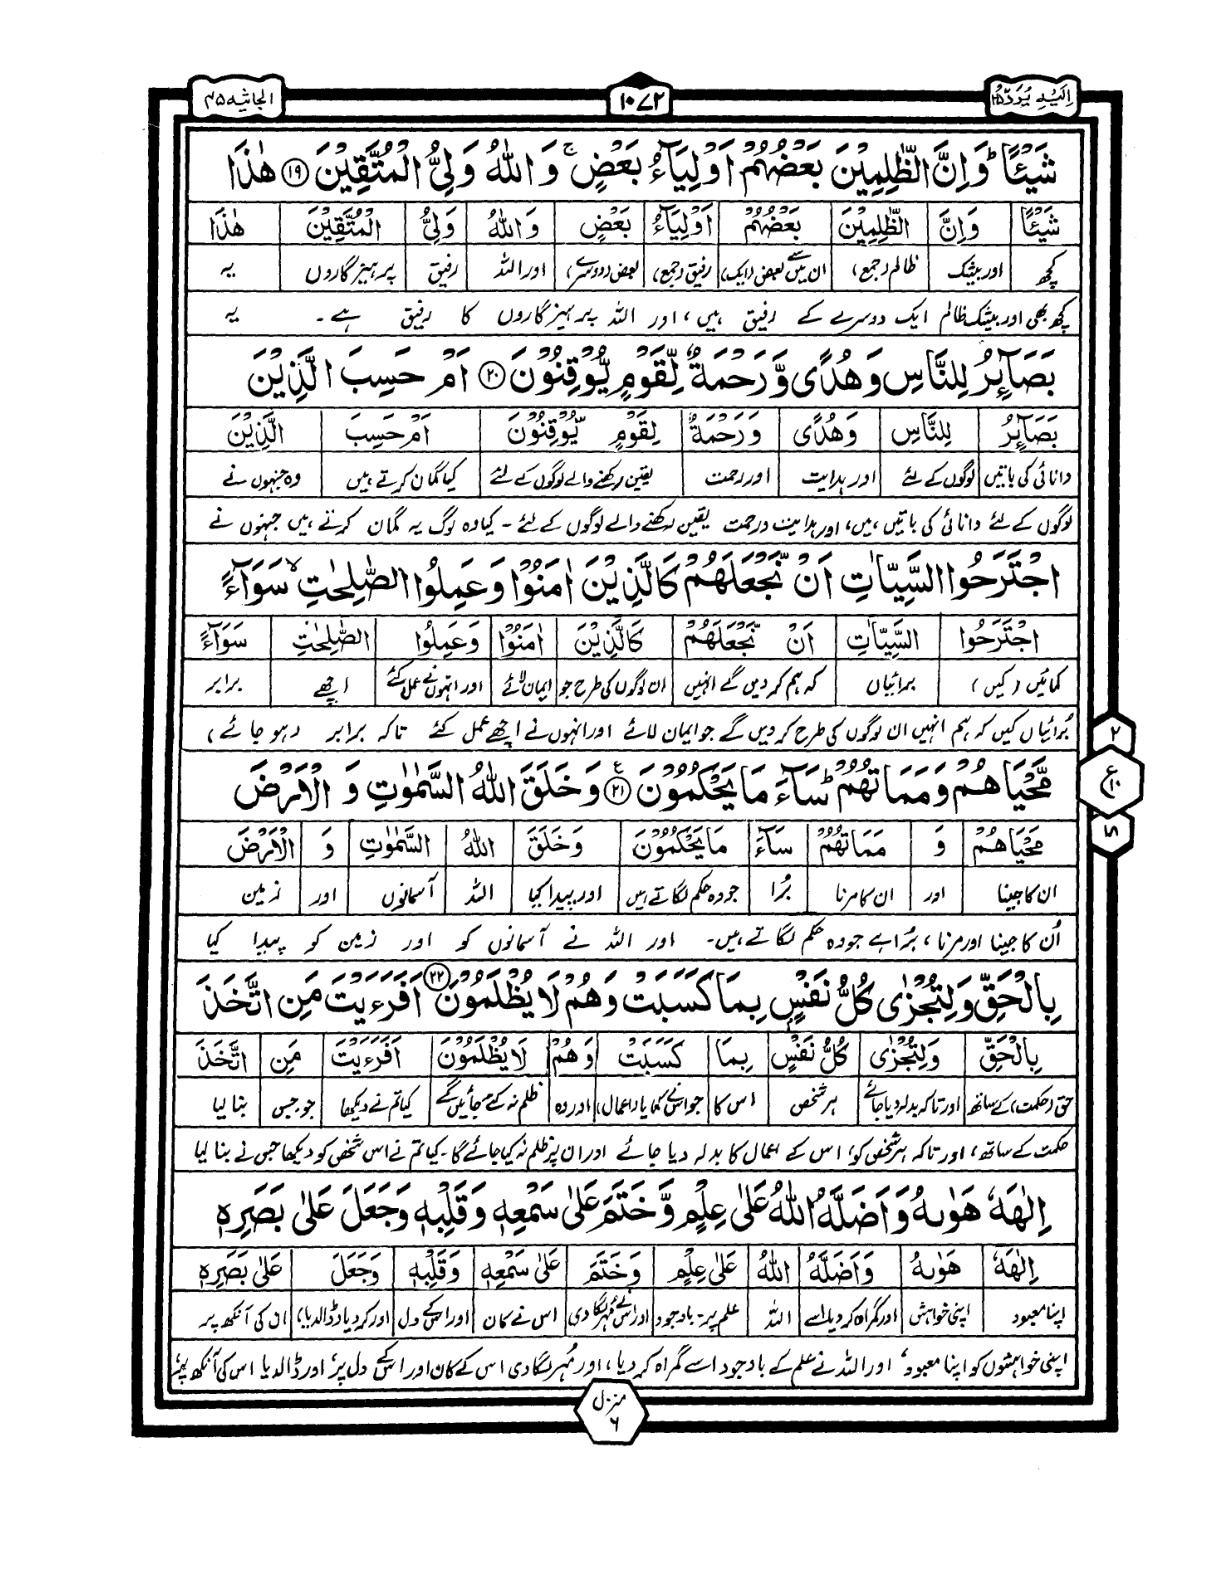 الجاثیه ۴۵ ۱۰۷۲ الیه یرد ۲۵
شَيْـًٔا ؕ وَاِنَّ الظّٰلِمِيْنَ بَعْضُهُمْ اَوْلِيَآءُ بَعْضٍ ۚ وَاللّٰهُ وَلِيُّ الْمُتَّقِيْنَ ۱۹ هٰذَا
شَيْـًٔا وَاِنَّ الظّٰلِمِيْنَ بَعْضُهُمْ اَوْلِيَآءُ بَعْضٍ وَاللّٰهُ وَلِيُّ الْمُتَّقِيْنَ هٰذَا
کچھ اور بیشک ظالم (جمع) ان میں سے بعض (ایک) رفیق (جمع) بعض (دوسرے) اور اللہ رفیق پرہیزگاروں یہ
کچھ بھی اور بیشک ظالم ایک دوسرے کے رفیق ہیں، اور اللہ پرہیزگاروں کا رفیق ہے۔ یہ
بَصَآئِرُ لِلنَّاسِ وَهُدًى وَّرَحْمَةٌ لِّقَوْمٍ يُّوْقِنُوْنَ ۲۰ اَمْ حَسِبَ الَّذِيْنَ
بَصَآئِرُ لِلنَّاسِ وَهُدًى وَرَحْمَةٌ لِقَوْمٍ يُّوْقِنُوْنَ اَمْ حَسِبَ الَّذِيْنَ
دانائی کی باتیں لوگوں کے لئے اور ہدایت اور رحمت یقین رکھنے والے لوگوں کے لئے کیا گمان کرتے ہیں وہ جنہوں نے
لوگوں کے لئے دانائی کی باتیں ہیں، اور ہدایت و رحمت یقین رکھنے والے لوگوں کے لئے۔ کیا وہ لوگ یہ گمان کرتے ہیں جنہوں نے
اجْتَرَحُوا السَّيِّاٰتِ اَنْ نَّجْعَلَهُمْ كَالَّذِيْنَ اٰمَنُوْا وَعَمِلُوا الصّٰلِحٰتِ ۙ سَوَآءً
اجْتَرَحُوا السَّيِّاٰتِ اَنْ نَّجْعَلَهُمْ كَالَّذِيْنَ اٰمَنُوْا وَعَمِلُوا الصّٰلِحٰتِ سَوَآءً
کمائیں (کیں) برائیاں کہ ہم کر دیں گے انہیں ان لوگوں کی طرح جو ایمان لائے اور انہوں نے عمل کئے اچھے برابر
بُرائیاں کیں کہ ہم انہیں ان لوگوں کی طرح کر دیں گے جو ایمان لائے اور انہوں نے اچھے عمل کئے تاکہ برابر (ہو جائے)
مَّحْيَاهُمْ وَمَمَاتُهُمْ ؕ سَآءَ مَا يَحْكُمُوْنَ ۲۱ ع وَخَلَقَ اللّٰهُ السَّمٰوٰتِ وَ الْاَرْضَ
مَّحْيَاهُمْ وَ مَمَاتُهُمْ سَآءَ مَا يَحْكُمُوْنَ وَخَلَقَ اللّٰهُ السَّمٰوٰتِ وَ الْاَرْضَ
ان کا جینا اور ان کا مرنا بُرا جو وہ حکم لگاتے ہیں اور پیدا کیا اللہ آسمانوں اور زمین
اُن کا جینا اور مرنا، بُرا ہے جو وہ حکم لگاتے ہیں۔ اور اللہ نے آسمانوں کو اور زمین کو پیدا کیا
بِالْحَقِّ وَلِتُجْزٰى كُلُّ نَفْسٍۭ بِمَا كَسَبَتْ وَهُمْ لَا يُظْلَمُوْنَ ۲۲ اَفَرَءَيْتَ مَنِ اتَّخَذَ
بِالْحَقِّ وَلِتُجْزٰى كُلُّ نَفْسٍۭ بِمَا كَسَبَتْ وَهُمْ لَا يُظْلَمُوْنَ اَفَرَءَيْتَ مَنِ اتَّخَذَ
حق (حکمت) کے ساتھ اور تاکہ بدلہ دیا جائے ہر شخص اس کا جو اس نے کمایا (اعمال) اور وہ ظلم نہ کئے جائیں گے کیا تم نے دیکھا جو جس بنا لیا
حکمت کے ساتھ، اور تاکہ ہر شخص کو اس کے اعمال کا بدلہ دیا جائے اور ان پر ظلم نہ کیا جائے گا۔ کیا تم نے اس شخص کو دیکھا جس نے بنا لیا
اِلٰهَهٗ هَوٰىهُ وَاَضَلَّهُ اللّٰهُ عَلٰى عِلْمٍ وَّخَتَمَ عَلٰى سَمْعِهٖ وَقَلْبِهٖ وَجَعَلَ عَلٰى بَصَرِهٖ
اِلٰهَهٗ هَوٰىهُ وَاَضَلَّهُ اللّٰهُ عَلٰى عِلْمٍ وَخَتَمَ عَلٰى سَمْعِهٖ وَقَلْبِهٖ وَجَعَلَ عَلٰى بَصَرِهٖ
اپنا معبود اپنی خواہش اور گمراہ کر دیا اسے اللہ علم پر۔ باوجود اور اس نے مُہر لگا دی اس نے کان اور اس کے دل اور کر دیا (ڈال دیا) ان کی آنکھ پر
اپنی خواہشوں کو اپنا معبود، اور اللہ نے علم کے باوجود اسے گمراہ کر دیا، اور مُہر لگا دی اس کے کان اور اس کے دل پر، اور ڈال دیا اس کی آنکھ پر
۲
ع ۱۰
منزل ۶